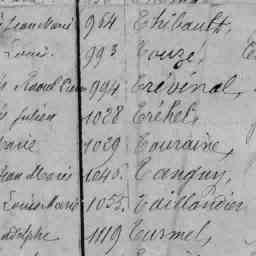 Jean Marie 964 Thibault,
Louis 993 Touzé,
Raoul 994 Trévénal,
Julien 1028 Tréhel,
1029 Touraine,
Jean Marie 1040 Tanguy,
Louis Marie 1055. Taillandier
Adolphe 1119 Turmel,